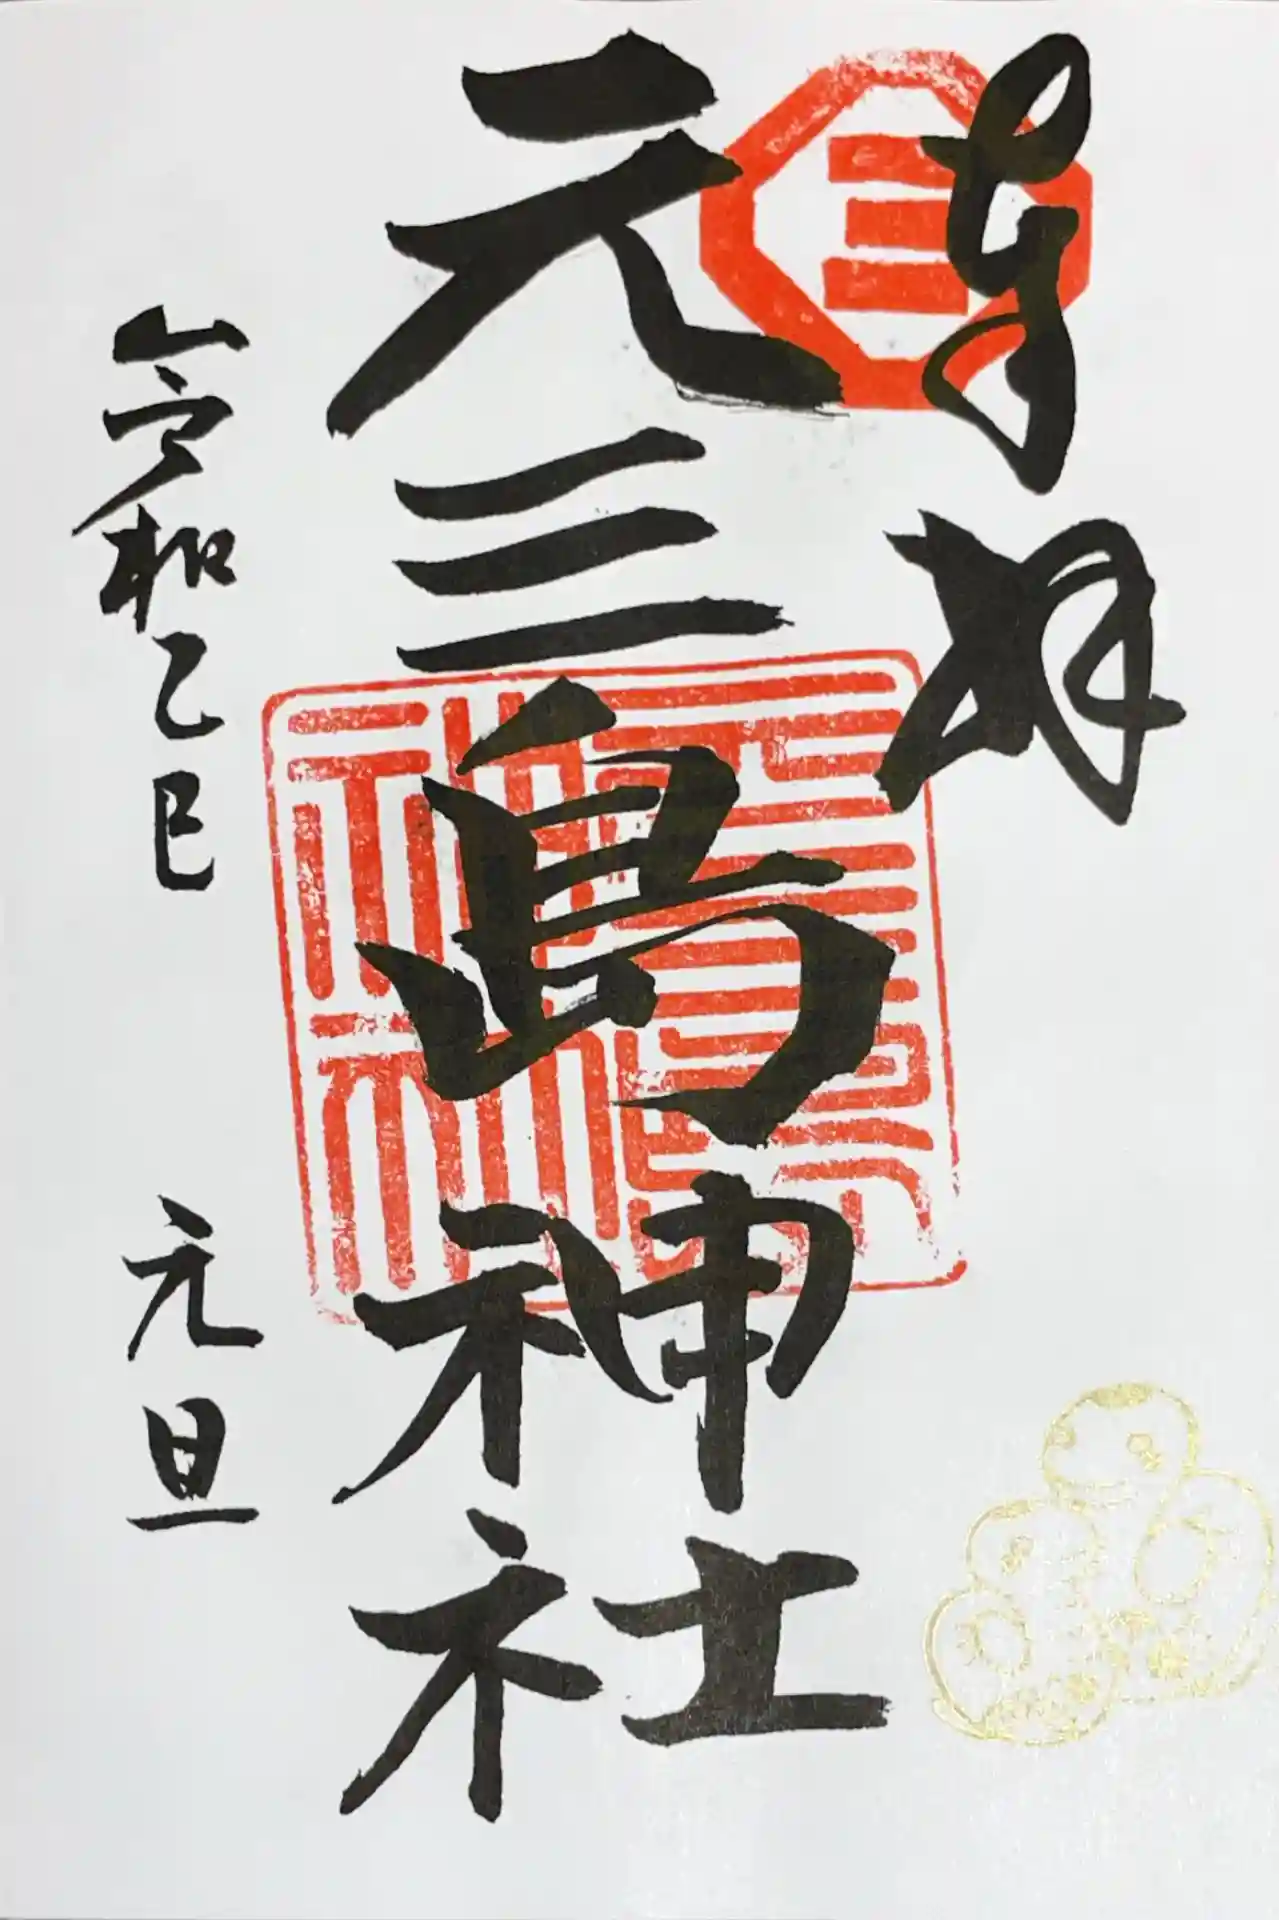 奉拝
三
元三島神社
元三島神社
令和乙巳 元旦